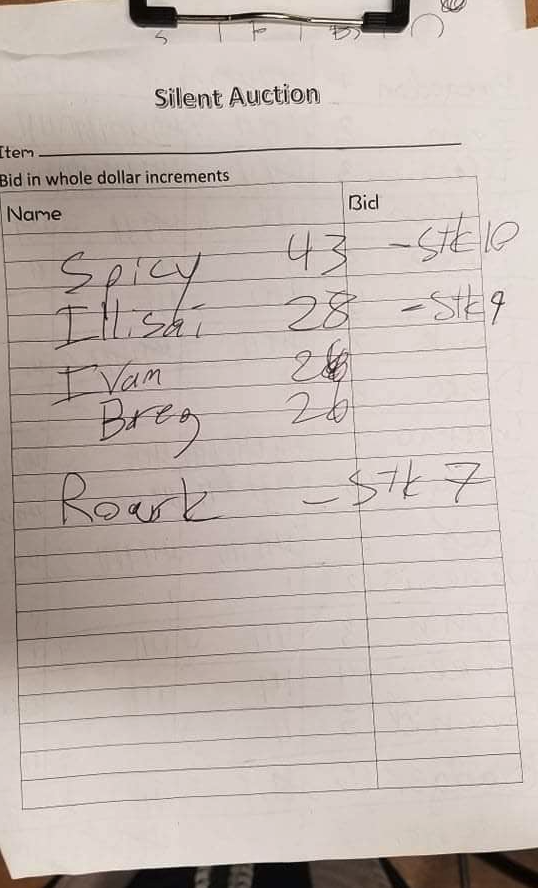 Silent Auction
Item
Bid in whole dollar increments
Name Bid
Spicy 43 -Stk 10
Illisai 28 -Stk 9
Ivan
Breg 26
Roark -Stk 7